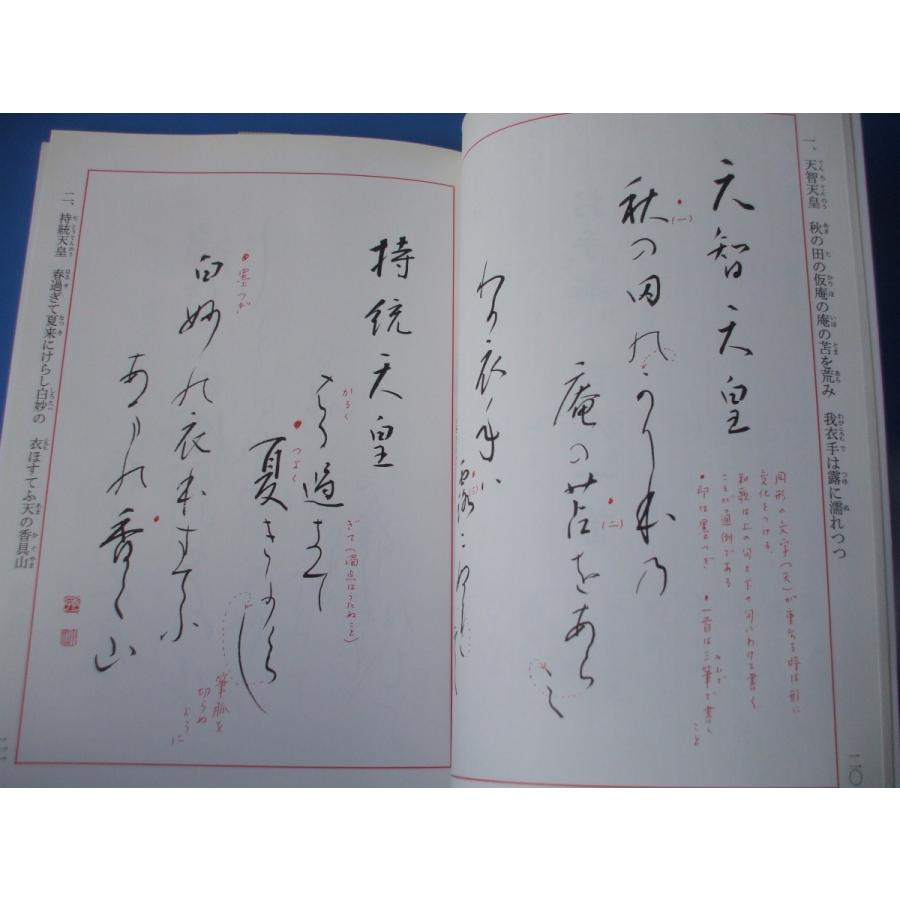 一、天智天皇 秋の田の仮庵の庵の苫を荒み 我衣手は露に濡れつつ
天智天皇
秋の田のかりほの
庵の苫をあらみ
わか衣手は
露に
(一)
(二)
同形の文字(天)が重なる時は形に
変化をつける。
和歌は上の句と下の句にわけて書く
ことが通例である
●印は墨つぎ ●一首は三筆で書くこと
二〇
持統天皇
はる過きて
夏きにけらし
白妙の衣ほすてふ
あまの香く山
かろく
つよく
墨つぎ
ぎて(濁点はうたぬこと)
筆脈を
切らぬ
ように
二、持統天皇 春過ぎて夏来にけらし白妙の 衣ほすてふ天の香具山
二一